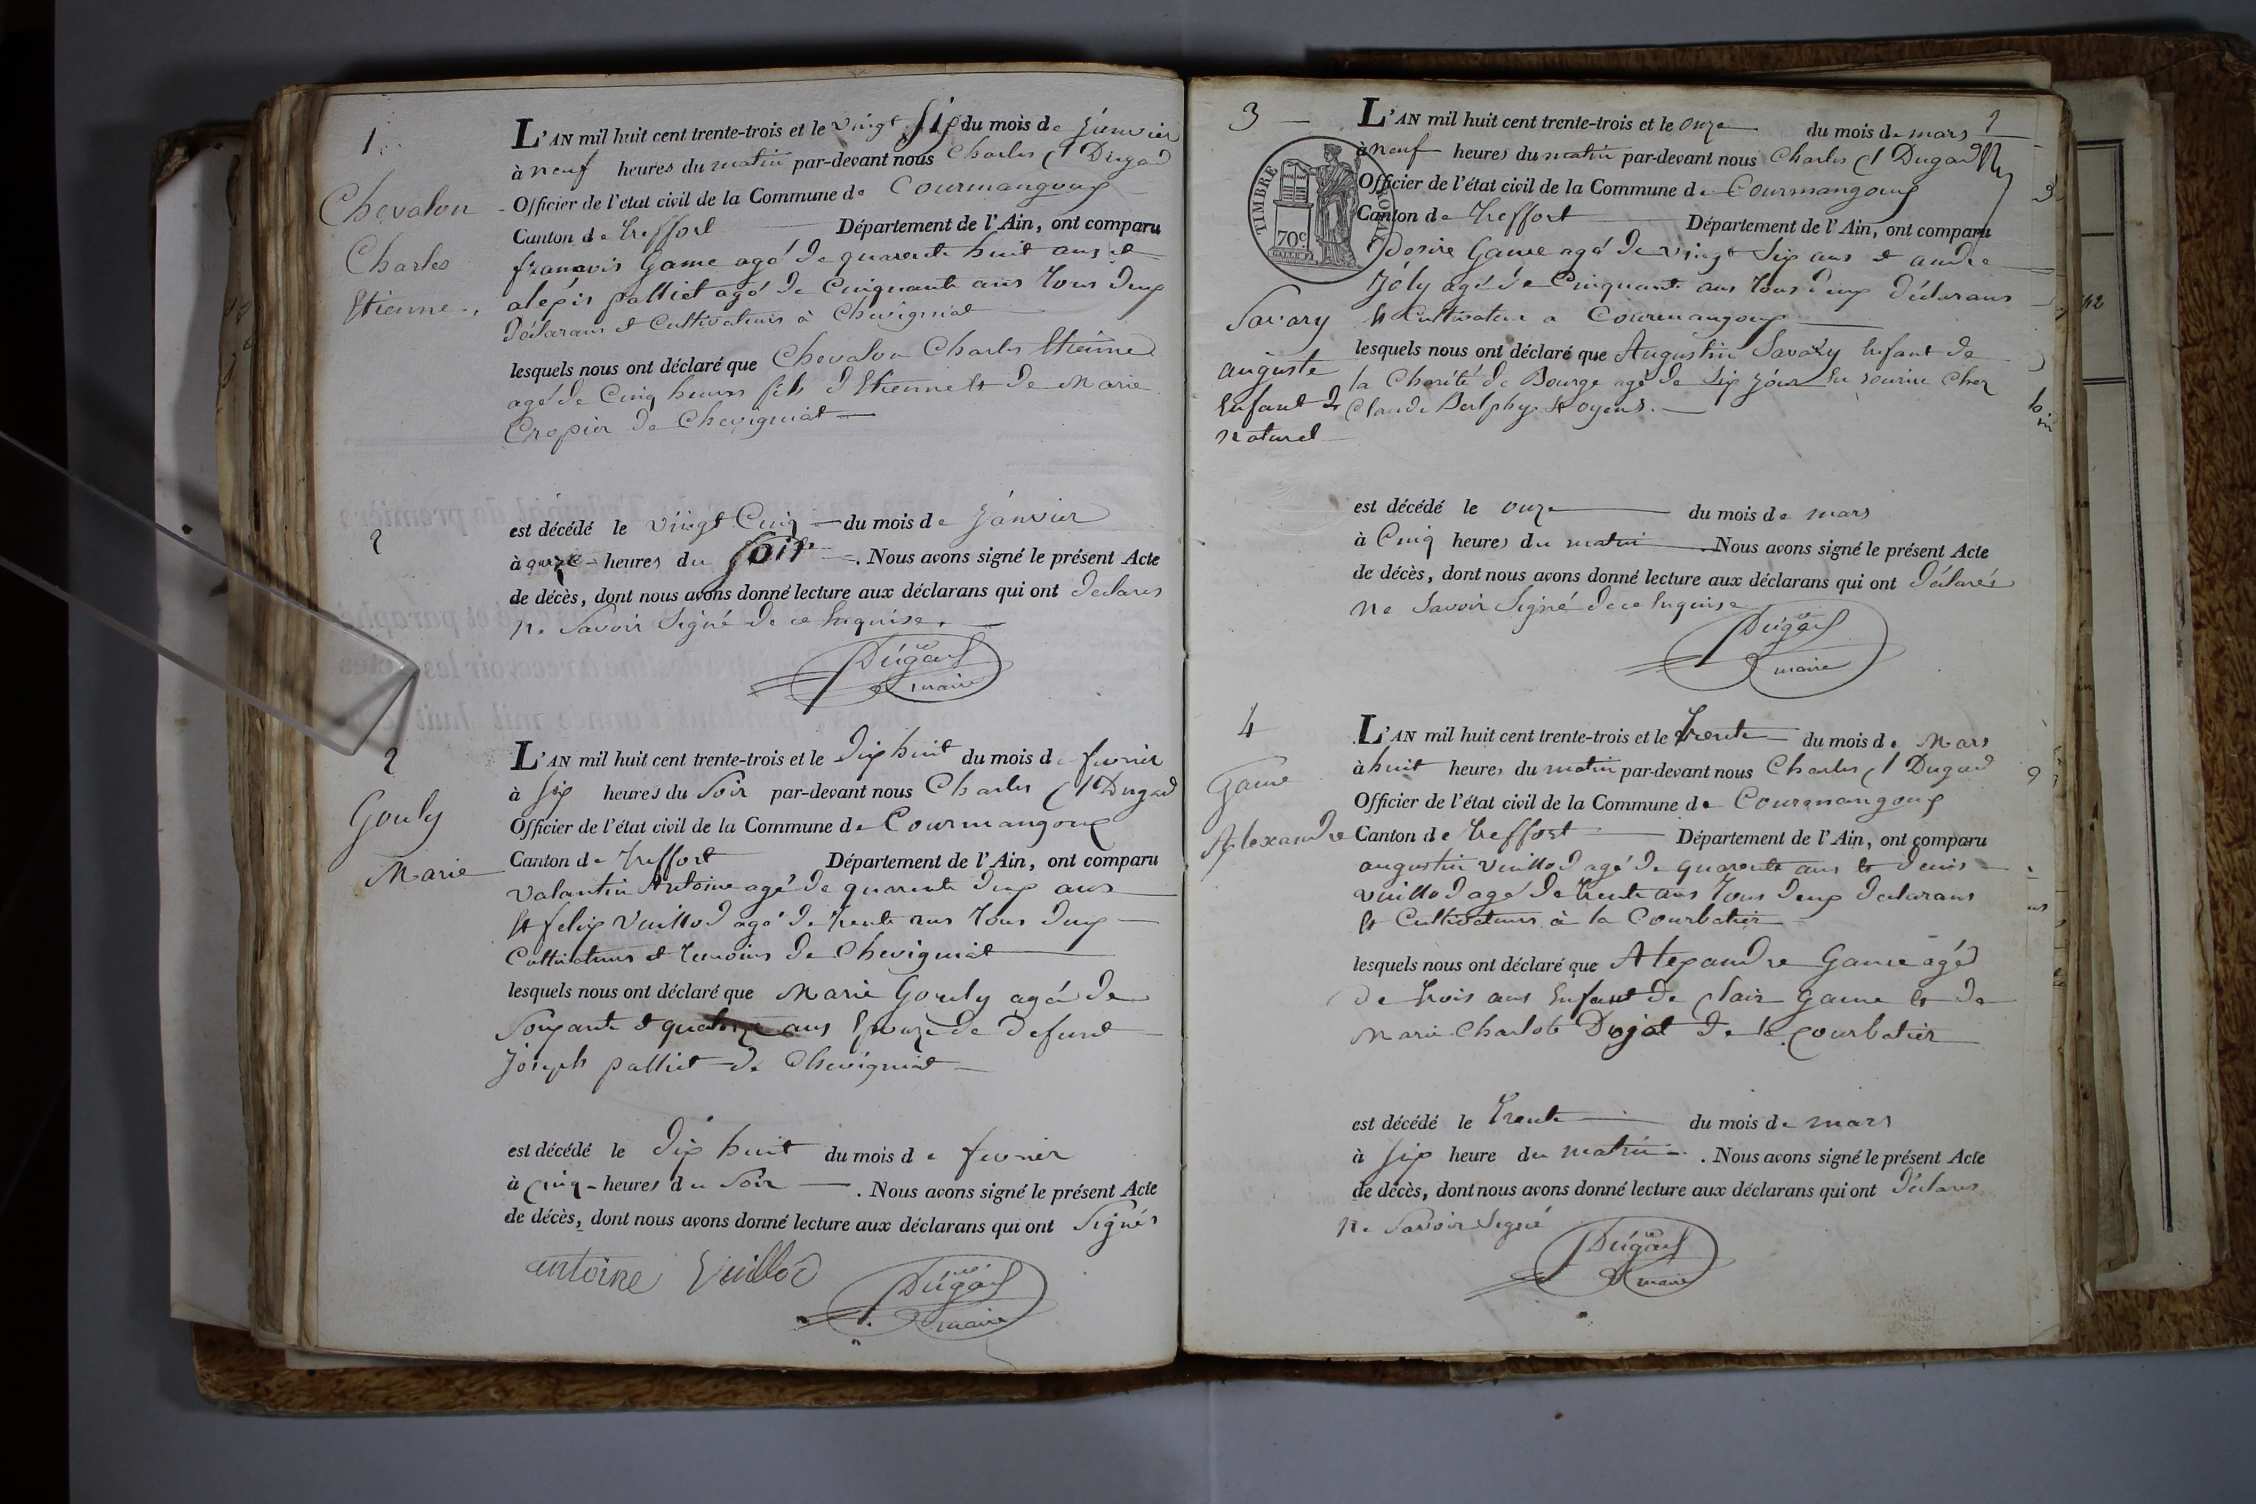 1
Chevalon
Charles
Etienne
L'AN mil huit cent trente-trois et le vingt six du mois de janvier
à neuf heures du matin par-devant nous Charles Dugad
Officier de l'état civil de la Commune de Courmangoux
Canton de treffort Département de l'Ain, ont comparu
françois Game agé de quarente huit ans et
alexis palliet agé de Cinquante ans tous deux
déclarans et Cultivateurs à Chevigniat
lesquels nous ont déclaré que Chevalon Charles Etienne
agé de Cinq heures fils d'Etienne et de Marie
Cropier de Chevigniat
est décédé le vingt Cinq du mois de janvier
à heures du soir. Nous avons signé le présent Acte
de décès, dont nous avons donné lecture aux déclarans qui ont declares
ne Savoir Signé de ce Enquise.
Dugad
maire
2
2
Gouly
Marie
L'AN mil huit cent trente-trois et le dix huit du mois de fevrier
à six heures du Soir par-devant nous Charles Dugad
Officier de l'état civil de la Commune de Courmangoux
Canton de treffort Département de l'Ain, ont comparu
valantin Antoine agé de quarente deux ans
et felix Vuillod agé de trente ans tous deux
Cultivateurs et temoins de Chevigniat
lesquels nous ont déclaré que Marie Gouly agée de
Soixante et quatorze ans Epouze de defunt
Joseph palliet de Chevigniat
est décédé le dix huit du mois de fevrier
à cinq heures du Soir. Nous avons signé le présent Acte
de décès, dont nous avons donné lecture aux déclarans qui ont Signés
antoine Vuillod
Dugad
maire
3
TIMBRE ROYAL
70c
Savary
auguste
Enfant
naturel
L'AN mil huit cent trente-trois et le onze du mois de mars
à neuf heures du matin par-devant nous Charles Dugad
Officier de l'état civil de la Commune de Courmangoux
Canton de treffort Département de l'Ain, ont comparu
desire Game agé de vingt six ans et andre
Joly agé de Cinquante ans tous deux déclarans
et Cultivateur a Courmangoux
lesquels nous ont déclaré que Augustin Savary Enfant de
la Charité de Bourge agé de six jour En nourice chez
Claude
est décédé le onze du mois de mars
à Cinq heures du matin. Nous avons signé le présent Acte
de décès, dont nous avons donné lecture aux déclarans qui ont déclarés
ne Savoir Signé de ce Enquise
Dugad
maire
4
Game
Alexandre
L'AN mil huit cent trente-trois et le trente du mois de Mars
à huit heures du matin par-devant nous Charles Dugad
Officier de l'état civil de la Commune de Courmangoux
Canton de treffort Département de l'Ain, ont comparu
augustin Vuillod agé de quarente ans et denis
vuillod agé de trente ans tous deux declarans
et Cultivateurs à la Courbatier
lesquels nous ont déclaré que Alexandre Game agé
de trois ans Enfant de Clair Game et de
Marie Charlote Dujat de la Courbatier
est décédé le trente du mois de mars
à six heure du matin. Nous avons signé le présent Acte
de décès, dont nous avons donné lecture aux déclarans qui ont déclares
ne Savoir Signé
Dugad
maire